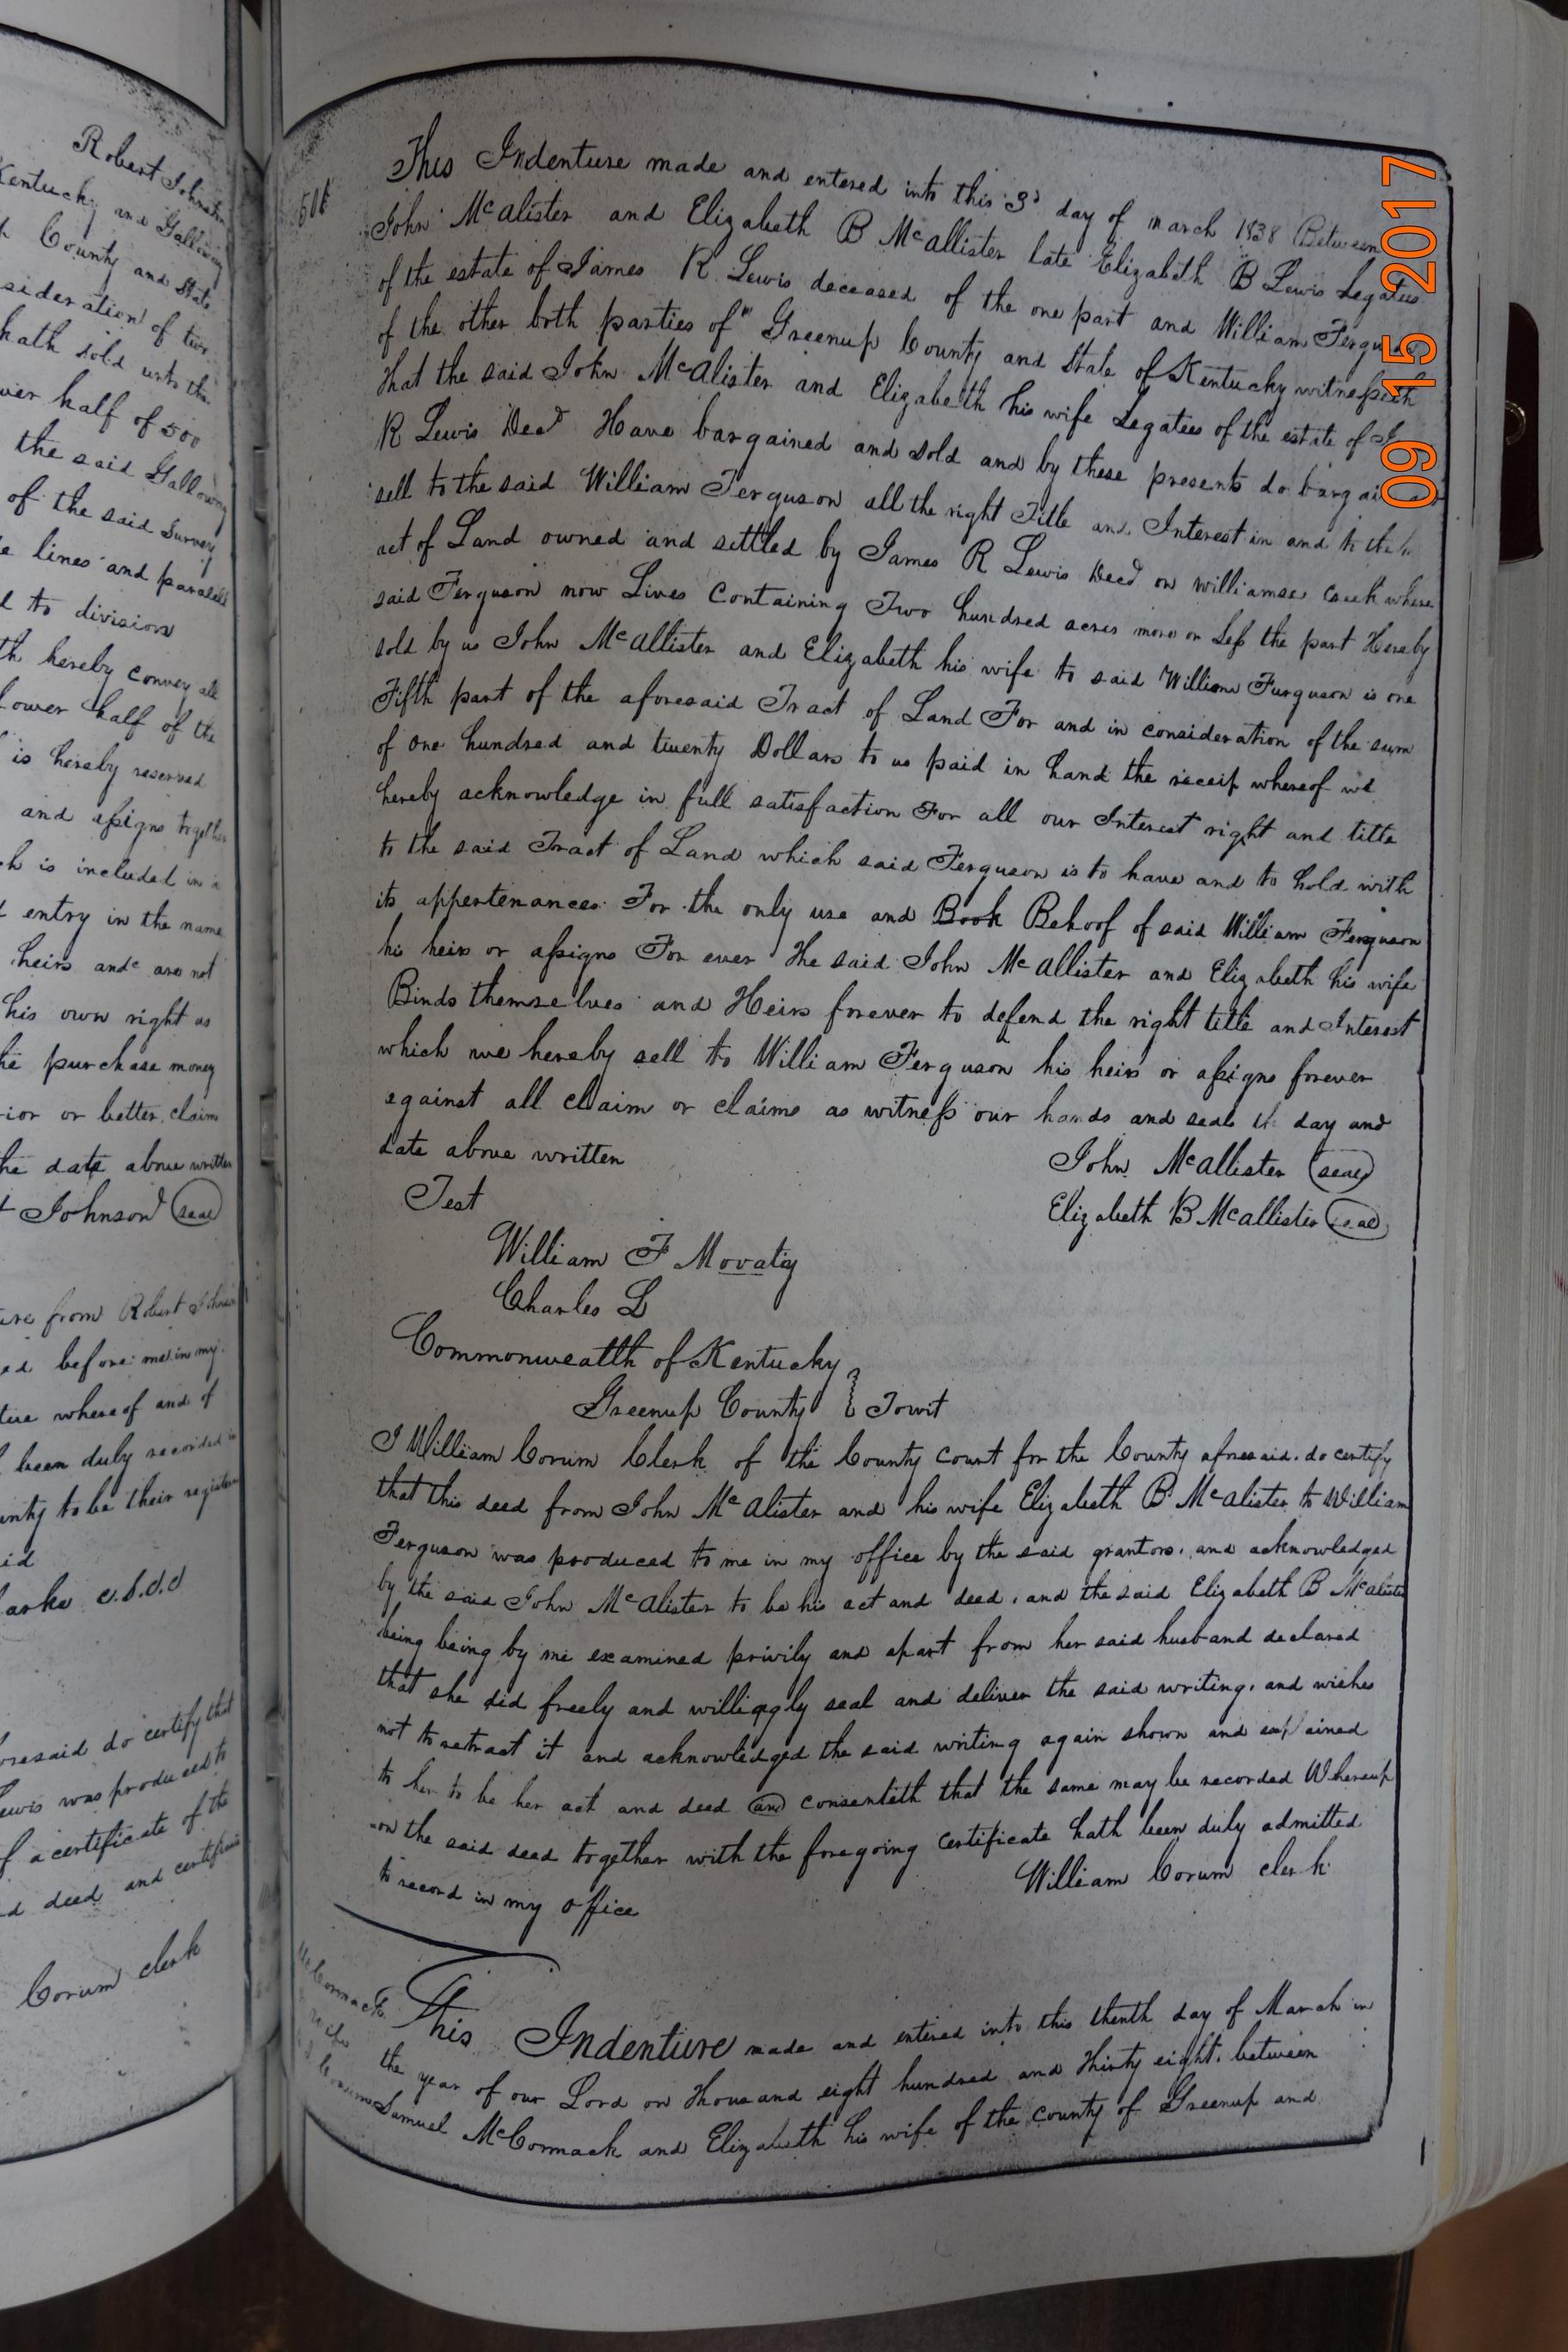 Robert Johnston
Kentucky and Galloway
County and State
sideration of two
hath sold unto the
wer half of 500
the said Galloway
of the said Survey
e lines and parallel
d to division
th hereby convey all
lower half of the
is hereby reserved
and assigns together
ch is included in a
d entry in the name
heirs andc are not
his own right as
he purchase money
rior or better claim
he date above written
t Johnson seal
ure from Robert Johnson
ed before me in my
ture whereof and of
been duly recorded in
unty to be their register
id
larke c.b.c.c
oresaid do certify that
ewis was produced to
f a certificate of the
d deed and certificate
Corum clerk
506
This Indenture made and entered into this 3d day of march 1838 Between
John McAlister and Elizabeth B McAllister late Elizabeth B Lewis Legatees
of the estate of James R Lewis deceased of the one part and William Ferguson
of the other both parties of Greenup County and State of Kentucky witnesseth
that the said John McAlister and Elizabeth his wife Legatees of the estate of J
R Lewis Decd Have bargained and sold and by these presents do bargai
sell to the said William Ferguson all the right Title and Interest in and to the
act of Land owned and settled by James R Lewis Decd on williamses creek where
said Ferguson now Lives Containing Two hundred acres more or Less the part Hereby
sold by us John McAllister and Elizabeth his wife to said William Furguson is one
Fifth part of the aforesaid Tract of Land For and in consideration of the sum
of one hundred and twenty Dollars to us paid in hand the receip whereof we
hereby acknowledge in full satisfaction For all our Interest right and title
to the said Tract of Land which said Ferguson is to have and to hold with
its appertenances For the only use and Book Behoof of said William Ferguson
his heirs or assigns For ever The said John McAllister and Elizabeth his wife
Binds themselves and Heirs forever to defend the right title and Interest
which we hereby sell to William Ferguson his heirs or assigns forever
against all claim or claims as witness our hands and seals the day and
date above written
John McAllister seal
Test
Elizabeth B McAllister seal
William F Movatig
Charles L
Commonwealth of Kentucky
Greenup County } Towit
I William Corum Clerk of the County court for the County aforesaid do certify
that this deed from John McAlister and his wife Elizabeth B McAlister to William
Ferguson was produced to me in my office by the said grantors and acknowledged
by the said John McAlister to be his act and deed, and the said Elizabeth B McAlister
being being by me examined privily and apart from her said husband declared
that she did freely and willingly seal and deliver the said writing, and wishes
not to retract it and acknowledged the said writing again shown and explained
to her to be her act and deed and consenteth that the same may be recorded Whereup
on the said deed together with the foregoing certificate hath been duly admitted
to record in my office
William Corum clerk
McCormack
This Indenture made and entered into this thenth day of March in
the year of our Lord on thousand eight hundred and thirty eight, between
Samuel McCormack and Elizabeth his wife of the county of Greenup and
09 15 2017